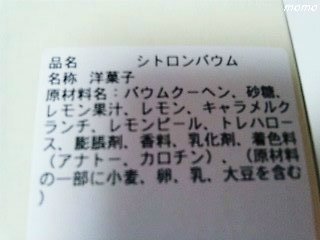 momo
品名　　　シトロンバウム
名称 洋菓子
原材料名：バウムクーヘン、砂糖、
レモン果汁、レモン、キャラメルク
ランチ、レモンピール、トレハロー
ス、膨脹剤、香料、乳化剤、着色料
（アナトー、カロチン）、（原材料
の一部に小麦、卵、乳、大豆を含む
）